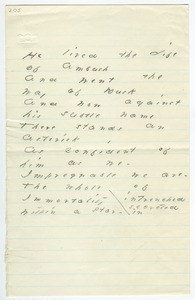 He lived the Life
of Ambush
And went the
way of Dusk
And now against
his subtle name
There stands an
Asterisk
As confident of
him as we -
Impregnable we are -
The whole of
Immortality intrenched
secreted
Within a Star -